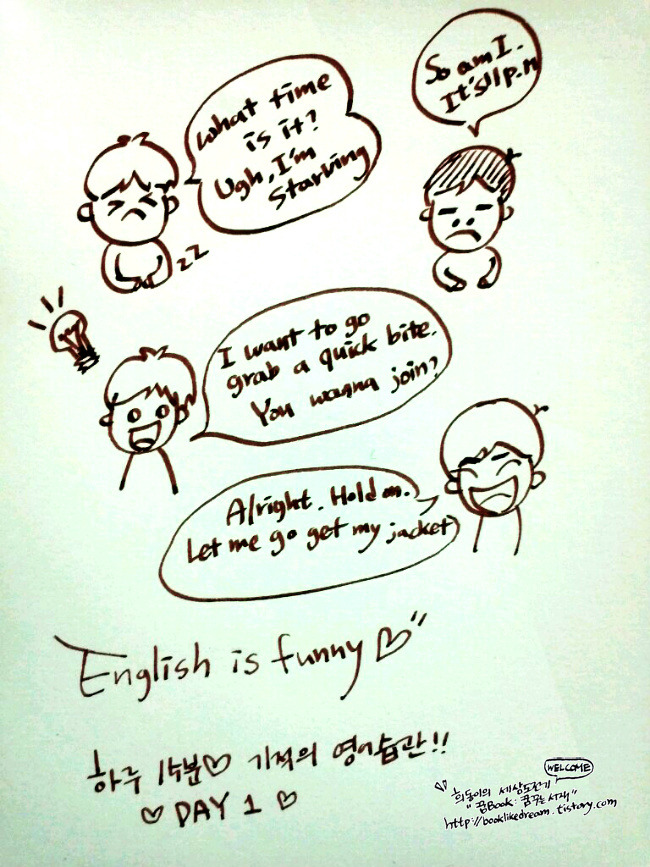 What time
is it?
Ugh, I'm
Starving
So am I.
It's 11p.m
I want to go
grab a quick bite.
You wanna join?
Alright. Hold on.
Let me go get my jacket
English is funny♡
하루 15분♡ 기적의 영어습관!!
♡ DAY 1 ♡
WELCOME
희동이의 세상도전기
"꿈Book: 꿈꾸는 서재"
http://booklikedream.tistory.com